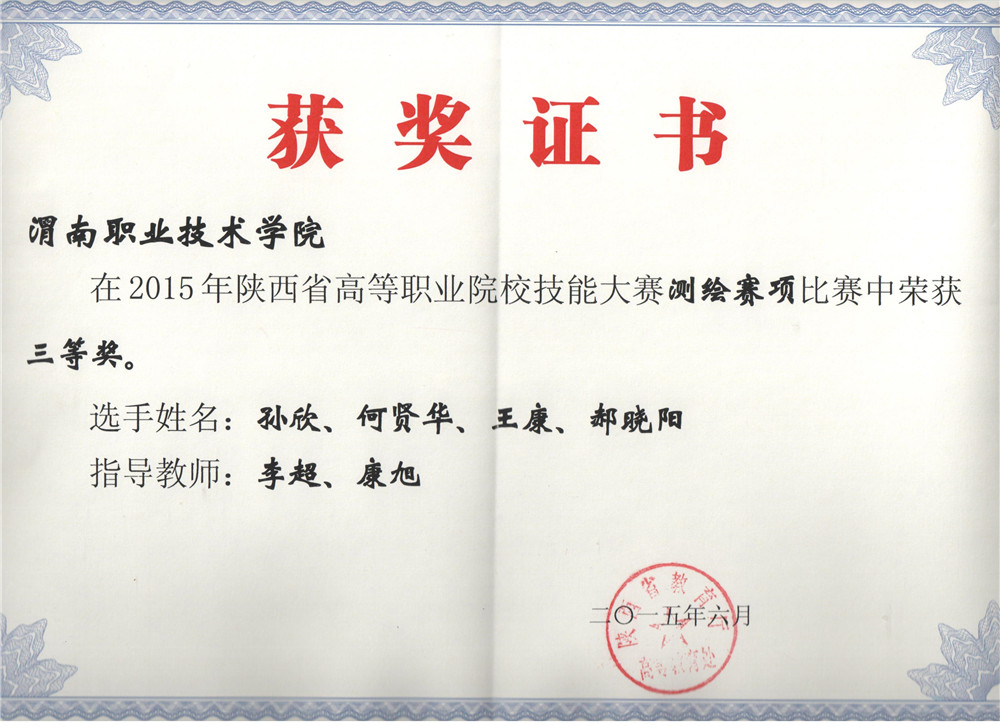 获奖证书
渭南职业技术学院
在2015年陕西省高等职业院校技能大赛测绘赛项比赛中荣获
三等奖。
选手姓名：孙欣、何贤华、王康、郝晓阳
指导教师：李超、康旭
陕西省教育厅
二〇一五年六月
高等教育处